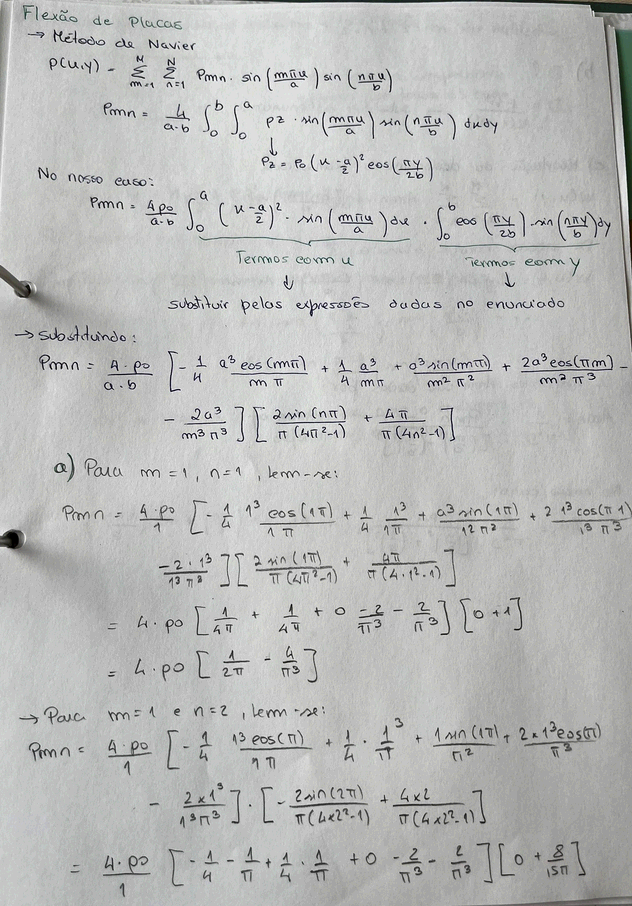 Flexão de Placas
→ Método de Navier
P(u,y) = \sum_{m=1}^{M} \sum_{n=1}^{N} Pmn · sin(mπu/a) sin(nπu/b)
Pmn = 4/(a·b) ∫_0^b ∫_0^a pz · sin(mπu/a) sin(nπu/b) du dy
↓
Pz = Po (u - a/2)² cos(πy/2b)
No nosso caso:
Pmn = 4po/(a·b) ∫_0^a (u - a/2)² · sin(mπu/a) du · ∫_0^b cos(πy/2b) · sin(nπy/b) dy
Termos com u Termos com y
↓ ↓
substituir pelas expressões dadas no enunciado
→ Substituindo:
Pmn = 4·po/(a·b) [ -1/4 a³cos(mπ)/(mπ) + 1/4 a³/(mπ) + a³sin(mπ)/(m²π²) + 2a³cos(πm)/(m²π³) -
- 2a³/(m³π³) ] [ 2sin(nπ)/(π(4π²-1)) + 4π/(π(4n²-1)) ]
a) Para m=1, n=1, tem-se:
Pmn = 4·po/1 [ -1/4 1³cos(1π)/(1π) + 1/4 1³/(1π) + a³sin(1π)/(1²π²) + 2 1³cos(π1)/(1³π³)
-2·1³/(1³π³) ] [ 2sin(1π)/(π(4π²-1)) + 4π/(π(4·1²-1)) ]
= 4·po [ 1/(4π) + 1/(4π) + 0 -2/π³ - 2/π³ ] [ 0+1 ]
= 4·po [ 1/(2π) - 4/π³ ]
→ Para m=1 e n=2, tem-se:
Pmn = 4·po/1 [ -1/4 1³cos(π)/(1π) + 1/4 · 1³/π + 1sin(1π)/π² + 2×1³cos(π)/π³
- 2×1³/(1³π³) ] · [ -2sin(2π)/(π(4×2²-1)) + 4×2/(π(4×2²-1)) ]
= 4·po/1 [ -1/4 - 1/π + 1/4 · 1/π + 0 -2/π³ - 2/π³ ] [ 0 + 8/(15π) ]